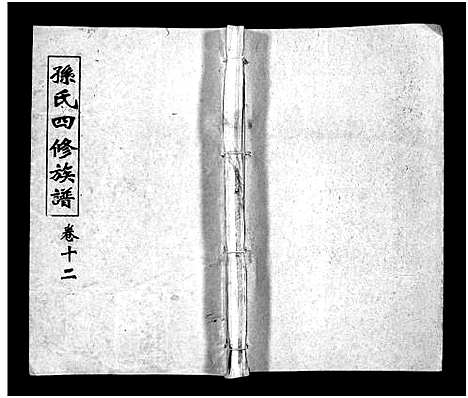 孫氏四修族譜
卷十二